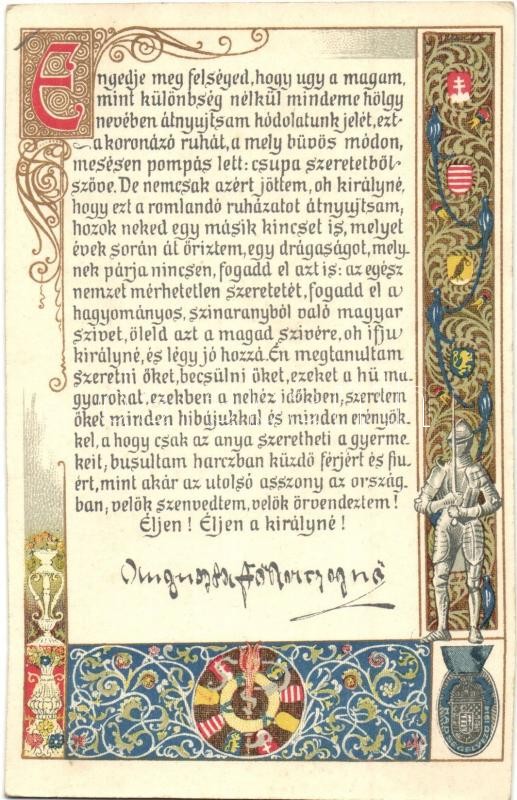 Engedje meg felséged, hogy ugy a magam,
mint különbség nélkül mindeme hölgy
nevében átnyujtsam hódolatunk jelét, ezt
a koronázó ruhát, a mely büvös módon,
mesésen pompás lett: csupa szeretetből
szőve. De nemcsak azért jöttem, oh királyné,
hogy ezt a romlandó ruházatot átnyujtsam;
hozok neked egy másik kincset is, melyet
évek során át őriztem, egy drágaságot, mely-
nek párja nincsen, fogadd el azt is: az egész
nemzet mérhetetlen szeretetét, fogadd el a
hagyományos, szinaranyból való magyar
szivet, öleld azt a magad szivére, oh ifju
királyné, és légy jó hozzá. Én megtanultam
szeretni őket, becsülni őket, ezeket a hü ma-
gyarokat, ezekben a nehéz időkben; szeretem
őket minden hibájukkal és minden erényök-
kel, a hogy csak az anya szeretheti a gyerme-
keit; busultam harczban küzdő férjért és fiu-
ért, mint akár az utolsó asszony az ország-
ban; velök szenvedtem, velök örvendeztem!
Éljen! Éljen a királyné!
Auguszta Főherczegnő